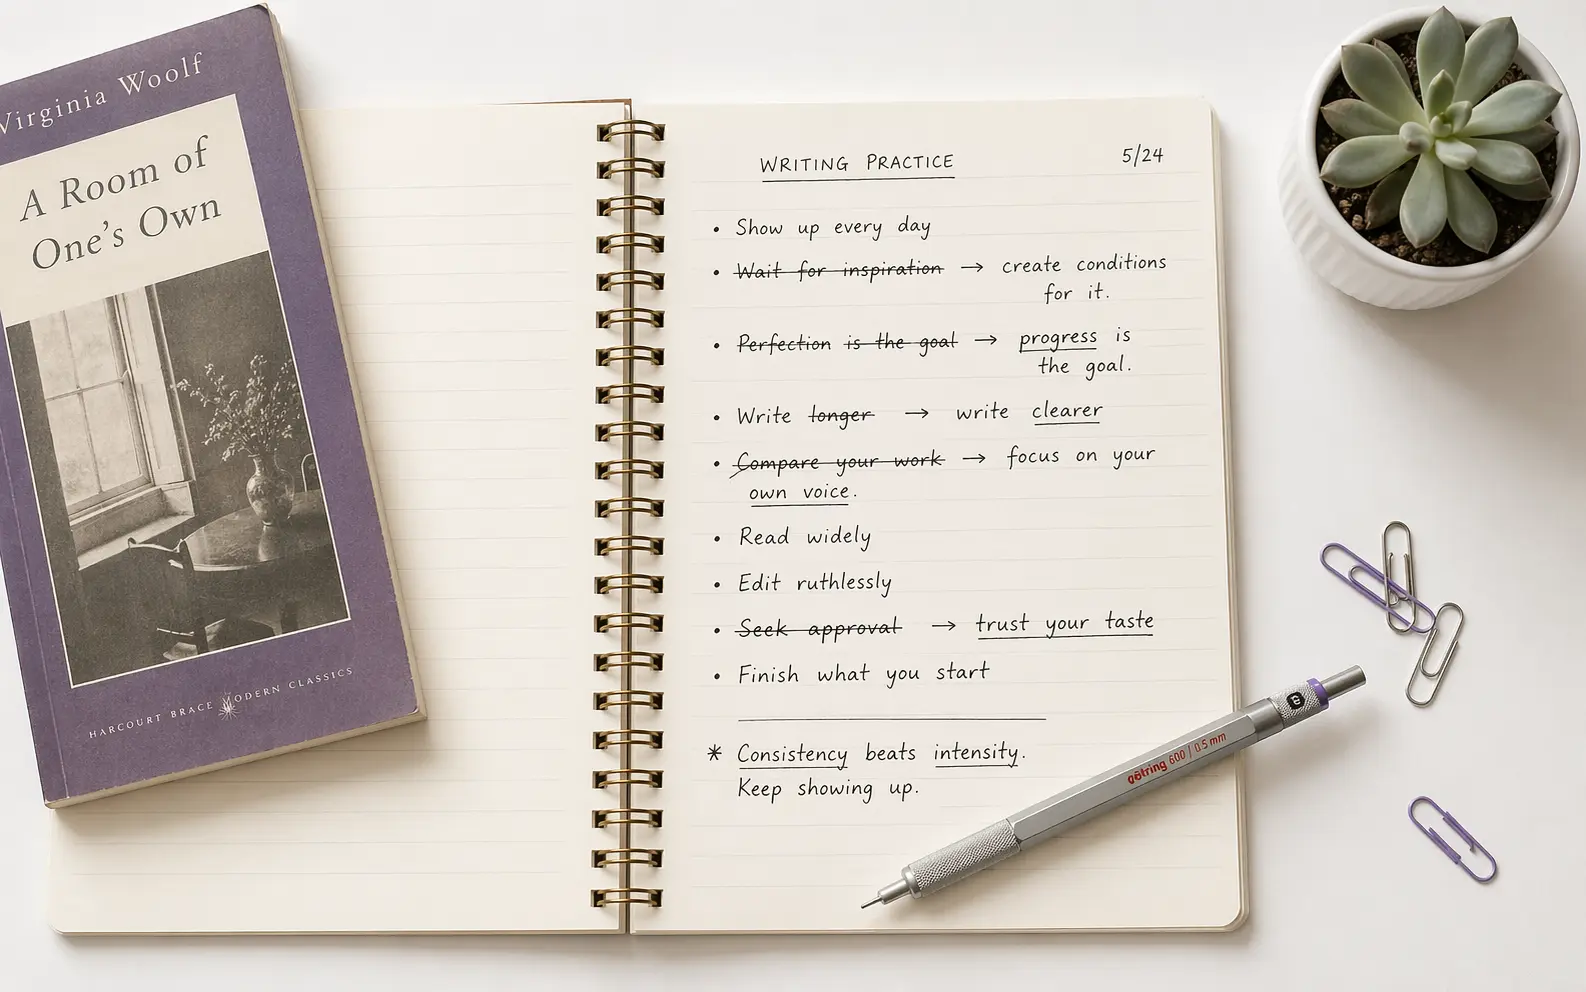 Virginia Woolf
A Room of
One's Own
HARCOURT BRACE MODERN CLASSICS
WRITING PRACTICE
5/24
• Show up every day
• Wait for inspiration → create conditions
for it.
• Perfection is the goal → progress is
the goal.
• Write longer → write clearer
• Compare your work → focus on your
own voice.
• Read widely
• Edit ruthlessly
• Seek approval → trust your taste
• Finish what you start
* Consistency beats intensity.
Keep showing up.
600 | 0.5 mm